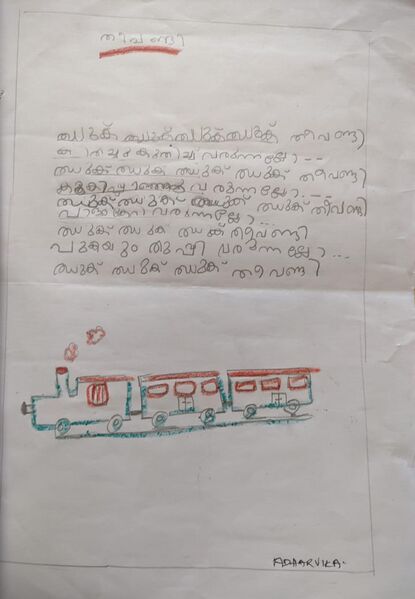 തീവണ്ടി
ഝുക് ഝുക് ഝുക് ഝുക് തീവണ്ടി
കുതിച്ചു കുതിച്ചു വരുന്നല്ലോ...
ഝുക് ഝുക് ഝുക് ഝുക് തീവണ്ടി
വരുന്നല്ലോ...
ഝുക് ഝുക് ഝുക് ഝുക് തീവണ്ടി
വരുന്നല്ലോ..
ഝുക് ഝുക് ഝുക് തീവണ്ടി
പുകയും തുപ്പി വരുന്നല്ലോ...
ഝുക് ഝുക് ഝുക് തീവണ്ടി
ADHARVIKA.